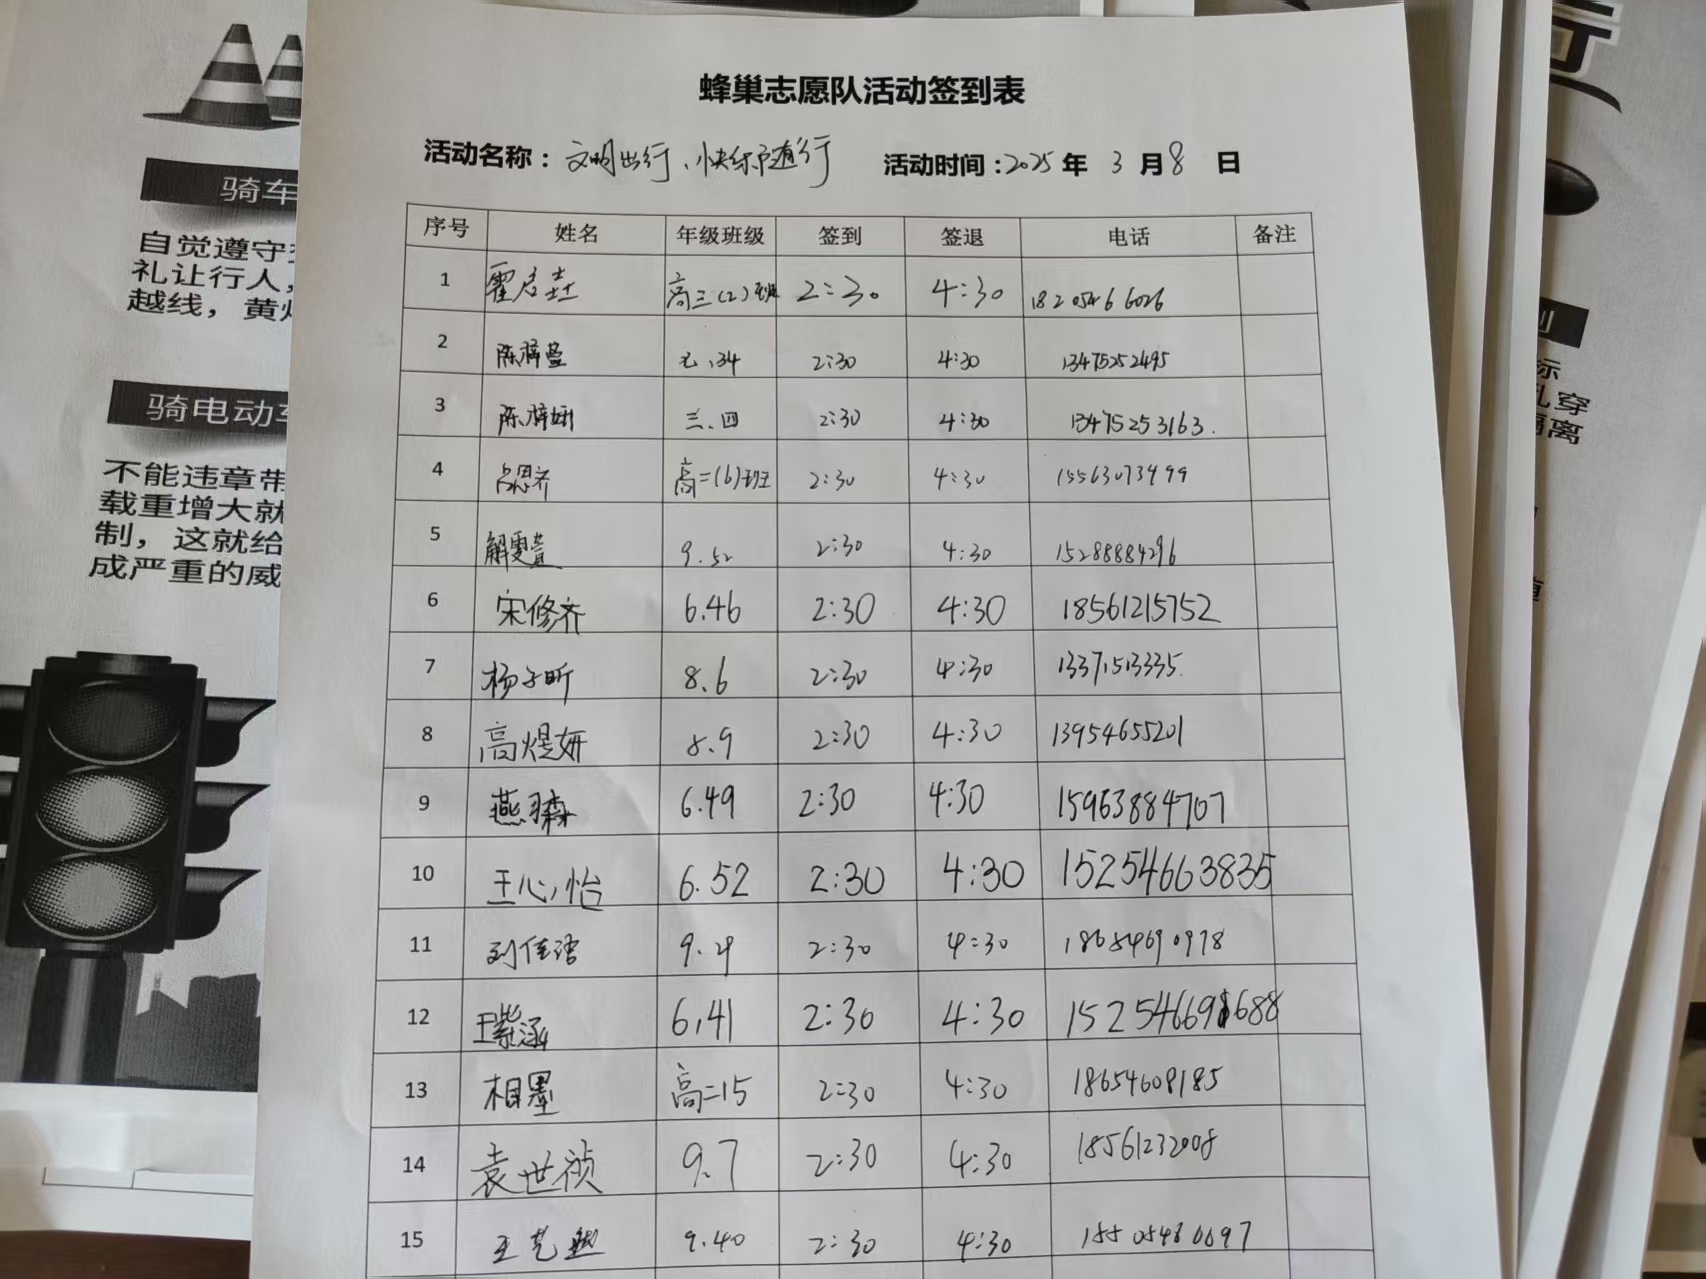 蜂巢志愿队活动签到表
活动名称：文明出行、快乐随行 活动时间：2025 年 3 月 8 日
序号 姓名 年级班级 签到 签退 电话 备注
1 霍启 高三(2)班 2:30 4:30 18205466026
2 陈 34 2:30 4:30 13475252495
3 陈梓妍 三.四 2:30 4:30 13475253163.
4 吕思齐 高二(6)班 2:30 4:30 15563073499
5 解雯萱 9.52 2:30 4:30 15288884296
6 宋修齐 6.46 2:30 4:30 18561215752
7 杨子昕 8.6 2:30 4:30 13371513335.
8 高煜妍 8.9 2:30 4:30 13954655201
9 燕 6.49 2:30 4:30 15963884707
10 王心怡 6.52 2:30 4:30 15254663835
11 刘佳语 9.29 2:30 4:30 18654690978
12 王紫涵 6.41 2:30 4:30
13 相墨 高二15 2:30 4:30 18654609185
14 袁世祯 9.7 2:30 4:30 18561232008
15 王艺 9.40 2:30 4:30
骑车
自觉遵守
礼让行人，
越线，黄
骑电动车
不能违章带
载重增大就
制，这就给
成严重的威
行
标
乱穿
隔离